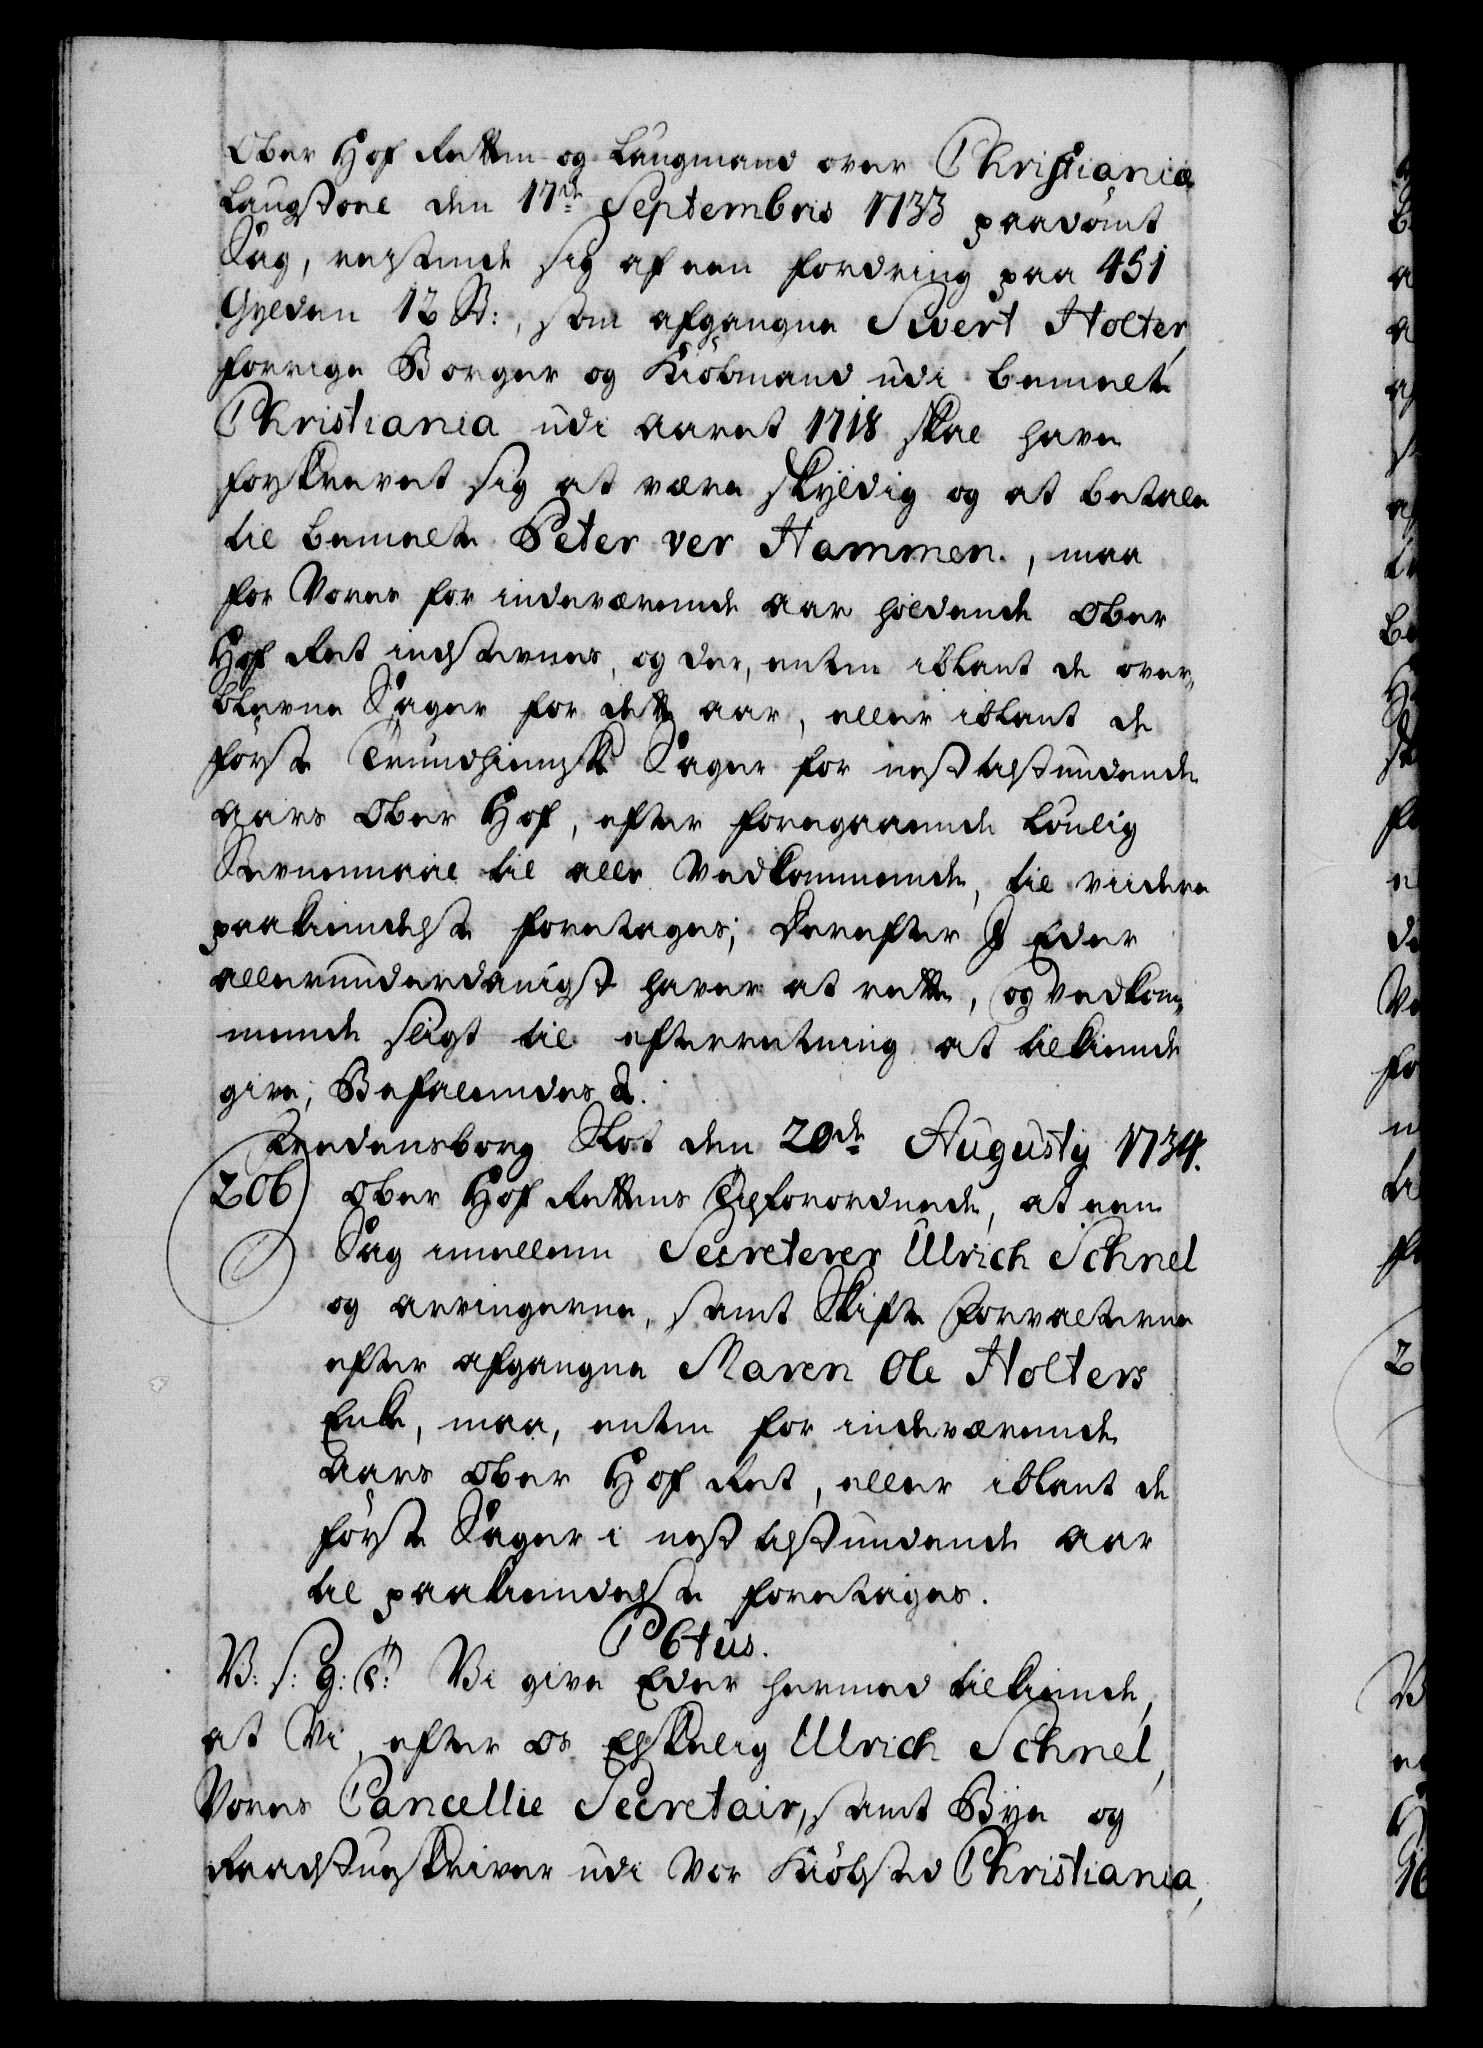 Ober Hof Retten og Laugmand over Christianiæ
Laugstoel den 17de Septembris 1733 paadömt
Sag, reisende sig af een fordring paa 451
Gylden 12 S:, som afgangne Sivert Holter,
forrige Borger og Kiöbmand udi bemelte
Christiania udi Aaret 1718 skal have
forskrevet sig at være skyldig og at betale
til bemelte Peter ver Hammen, maa
for Vores for indeværende Aar holdende Ober
Hof Ret indstevnes, og der, enten iblant de over,
blevne Sager for dette Aar, eller iblant de
förste Trundhiemske Sager for nest tilstundende
Aars Ober Hof, efter foregaaende lovlig
Stevnemaal til alle Vedkommende, til viidere
paakiendelse foretages; Derefter I Eder
allerunderdanigst haver at rette, og Vedkom,
mende sligt til efterretning at tilkiende
give, Befalendes &.
Fredensborg Slot den 20de Augusty 1734.
206) Ober Hof Rettens Tilforordnede, at een
Sag imellem Secreterer Ulrich Schnel
og arvingerne, samt Skifte Forvalterne
efter afgangne Maren Ole Holters
Enke, maa, enten for indeværende
Aars Ober Hof Ret, eller iblant de
förste Sager i nest tilstundende Aar
til paakiendelse foretages.
C6tus.
V: S: G: T: Vi give Eder hermed tilkiende,
at Vi, efter os Elskelig Ulrich Schnel,
Vores Cancellie Secretair, samt Bye og
Raadstueskriver udi Vor Kiöbsted Christiania,